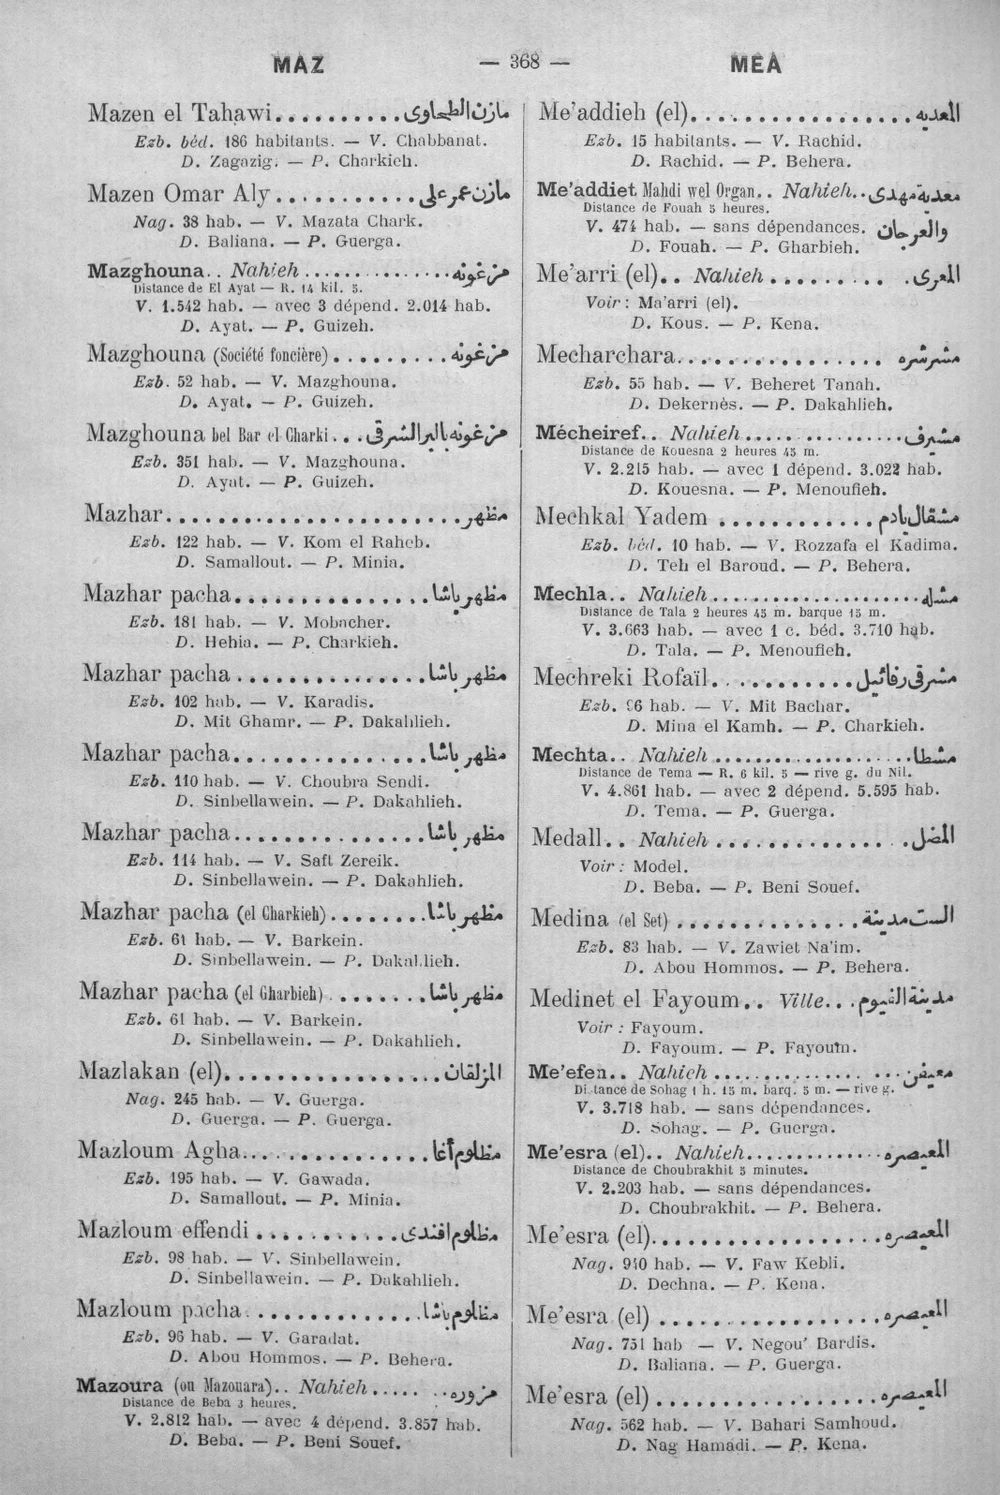 MAZ — 368 — MÊA
Mazen el Tahawi.......... مازن الطحاوى
Ezb. béd. 186 habitants. — V. Chabbanat.
D. Zagazig. — P. Charkieh.
Mazen Omar Aly........... مازن عمر على
Nag. 38 hab. — V. Mazata Chark.
D. Baliana. — P. Guerga.
Mazghouna.. Nahieh............... مزغونه
Distance de El Ayat — R. 14 kil. 5.
V. 1.542 hab. — avec 3 dépend. 2.014 hab.
D. Ayat. — P. Guizeh.
Mazghouna (Société foncière)......... مزغونه
Ezb. 52 hab. — V. Mazghouna.
D. Ayat. — P. Guizeh.
Mazghouna bel Bar el Charki... مزغونه بالبر الشرقى
Ezb. 351 hab. — V. Mazghouna.
D. Ayat. — P. Guizeh.
Mazhar....................... مظهر
Ezb. 122 hab. — V. Kom el Raheb.
D. Samallout. — P. Minia.
Mazhar pacha............... مظهر باشا
Ezb. 181 hab. — V. Mobacher.
D. Hehia. — P. Charkieh.
Mazhar pacha............... مظهر باشا
Ezb. 102 hab. — V. Karadis.
D. Mit Ghamr. — P. Dakahlieh.
Mazhar pacha............... مظهر باشا
Ezb. 110 hab. — V. Choubra Sendi.
D. Sinbellawein. — P. Dakahlieh.
Mazhar pacha............... مظهر باشا
Ezb. 114 hab. — V. Saft Zereik.
D. Sinbellawein. — P. Dakahlieh.
Mazhar pacha (el Charkieh)........ مظهر باشا
Ezb. 61 hab. — V. Barkein.
D. Sinbellawein. — P. Dakahlieh.
Mazhar pacha (el Gharbieh)........ مظهر باشا
Ezb. 61 hab. — V. Barkein.
D. Sinbellawein. — P. Dakahlieh.
Mazlakan (el)................. المزلقان
Nag. 245 hab. — V. Guerga.
D. Guerga. — P. Guerga.
Mazloum Agha............... مظلوم أغا
Ezb. 195 hab. — V. Gawada.
D. Samallout. — P. Minia.
Mazloum effendi............ مظلوم افندى
Ezb. 98 hab. — V. Sinbellawein.
D. Sinbellawein. — P. Dakahlieh.
Mazloum pacha.............. مظلوم باشا
Ezb. 96 hab. — V. Garadat.
D. Abou Hommos. — P. Behera.
Mazoura (ou Mazouara).. Nahieh....... مزوره
Distance de Beba 3 heures.
V. 2.812 hab. — avec 4 dépend. 3.857 hab.
D. Beba. — P. Beni Souef.
Me'addieh (el).................. المعديه
Ezb. 15 habitants. — V. Rachid.
D. Rachid. — P. Behera.
Me'addiet Mahdi wel Organ.. Nahieh.. معدية مهدى
Distance de Fouah 5 heures.
V. 474 hab. — sans dépendances. والعرجان
D. Fouah. — P. Gharbieh.
Me'arri (el).. Nahieh........... المعرى
Voir: Ma'arri (el).
D. Kous. — P. Kena.
Mecharchara................. مشرشره
Ezb. 55 hab. — V. Beheret Tanah.
D. Dekernès. — P. Dakahlieh.
Mécheiref.. Nahieh................ مشيرف
Distance de Kouesna 2 heures 45 m.
V. 2.215 hab. — avec 1 dépend. 3.022 hab.
D. Kouesna. — P. Menoufieh.
Mechkal Yadem............. مشقال يادم
Ezb. béd. 10 hab. — V. Rozzafa el Kadima.
D. Teh el Baroud. — P. Behera.
Mechla.. Nahieh..................... مشله
Distance de Tala 2 heures 45 m. barque 15 m.
V. 3.663 hab. — avec 1 c. béd. 3.710 hab.
D. Tala. — P. Menoufieh.
Mechreki Rofaïl............ مشرقى رفائيل
Ezb. 96 hab. — V. Mit Bachar.
D. Mina el Kamh. — P. Charkieh.
Mechta.. Nahieh................... مشطا
Distance de Tema — R. 6 kil. 5 — rive g. du Nil.
V. 4.861 hab. — avec 2 dépend. 5.595 hab.
D. Tema. — P. Guerga.
Medall.. Nahieh............... المضل
Voir: Model.
D. Beba. — P. Beni Souef.
Medina (el Set).............. الست مدينة
Ezb. 83 hab. — V. Zawiet Na'im.
D. Abou Hommos. — P. Behera.
Medinet el Fayoum.. Ville... مدينة الفيوم
Voir: Fayoum.
D. Fayoum. — P. Fayoum.
Me'efen.. Nahieh.................. معيفن
Distance de Sohag 1 h. 15 m. barq. 5 m. — rive g.
V. 3.718 hab. — sans dépendances.
D. Sohag. — P. Guerga.
Me'esra (el).. Nahieh.............. المعيصره
Distance de Choubrakhit 5 minutes.
V. 2.203 hab. — sans dépendances.
D. Choubrakhit. — P. Behera.
Me'esra (el).................. المعيصره
Nag. 940 hab. — V. Faw Kebli.
D. Dechna. — P. Kena.
Me'esra (el).................. المعيصره
Nag. 751 hab — V. Negou' Bardis.
D. Baliana. — P. Guerga.
Me'esra (el).................. المعيصره
Nag. 562 hab. — V. Bahari Samhoud.
D. Nag Hamadi. — P. Kena.